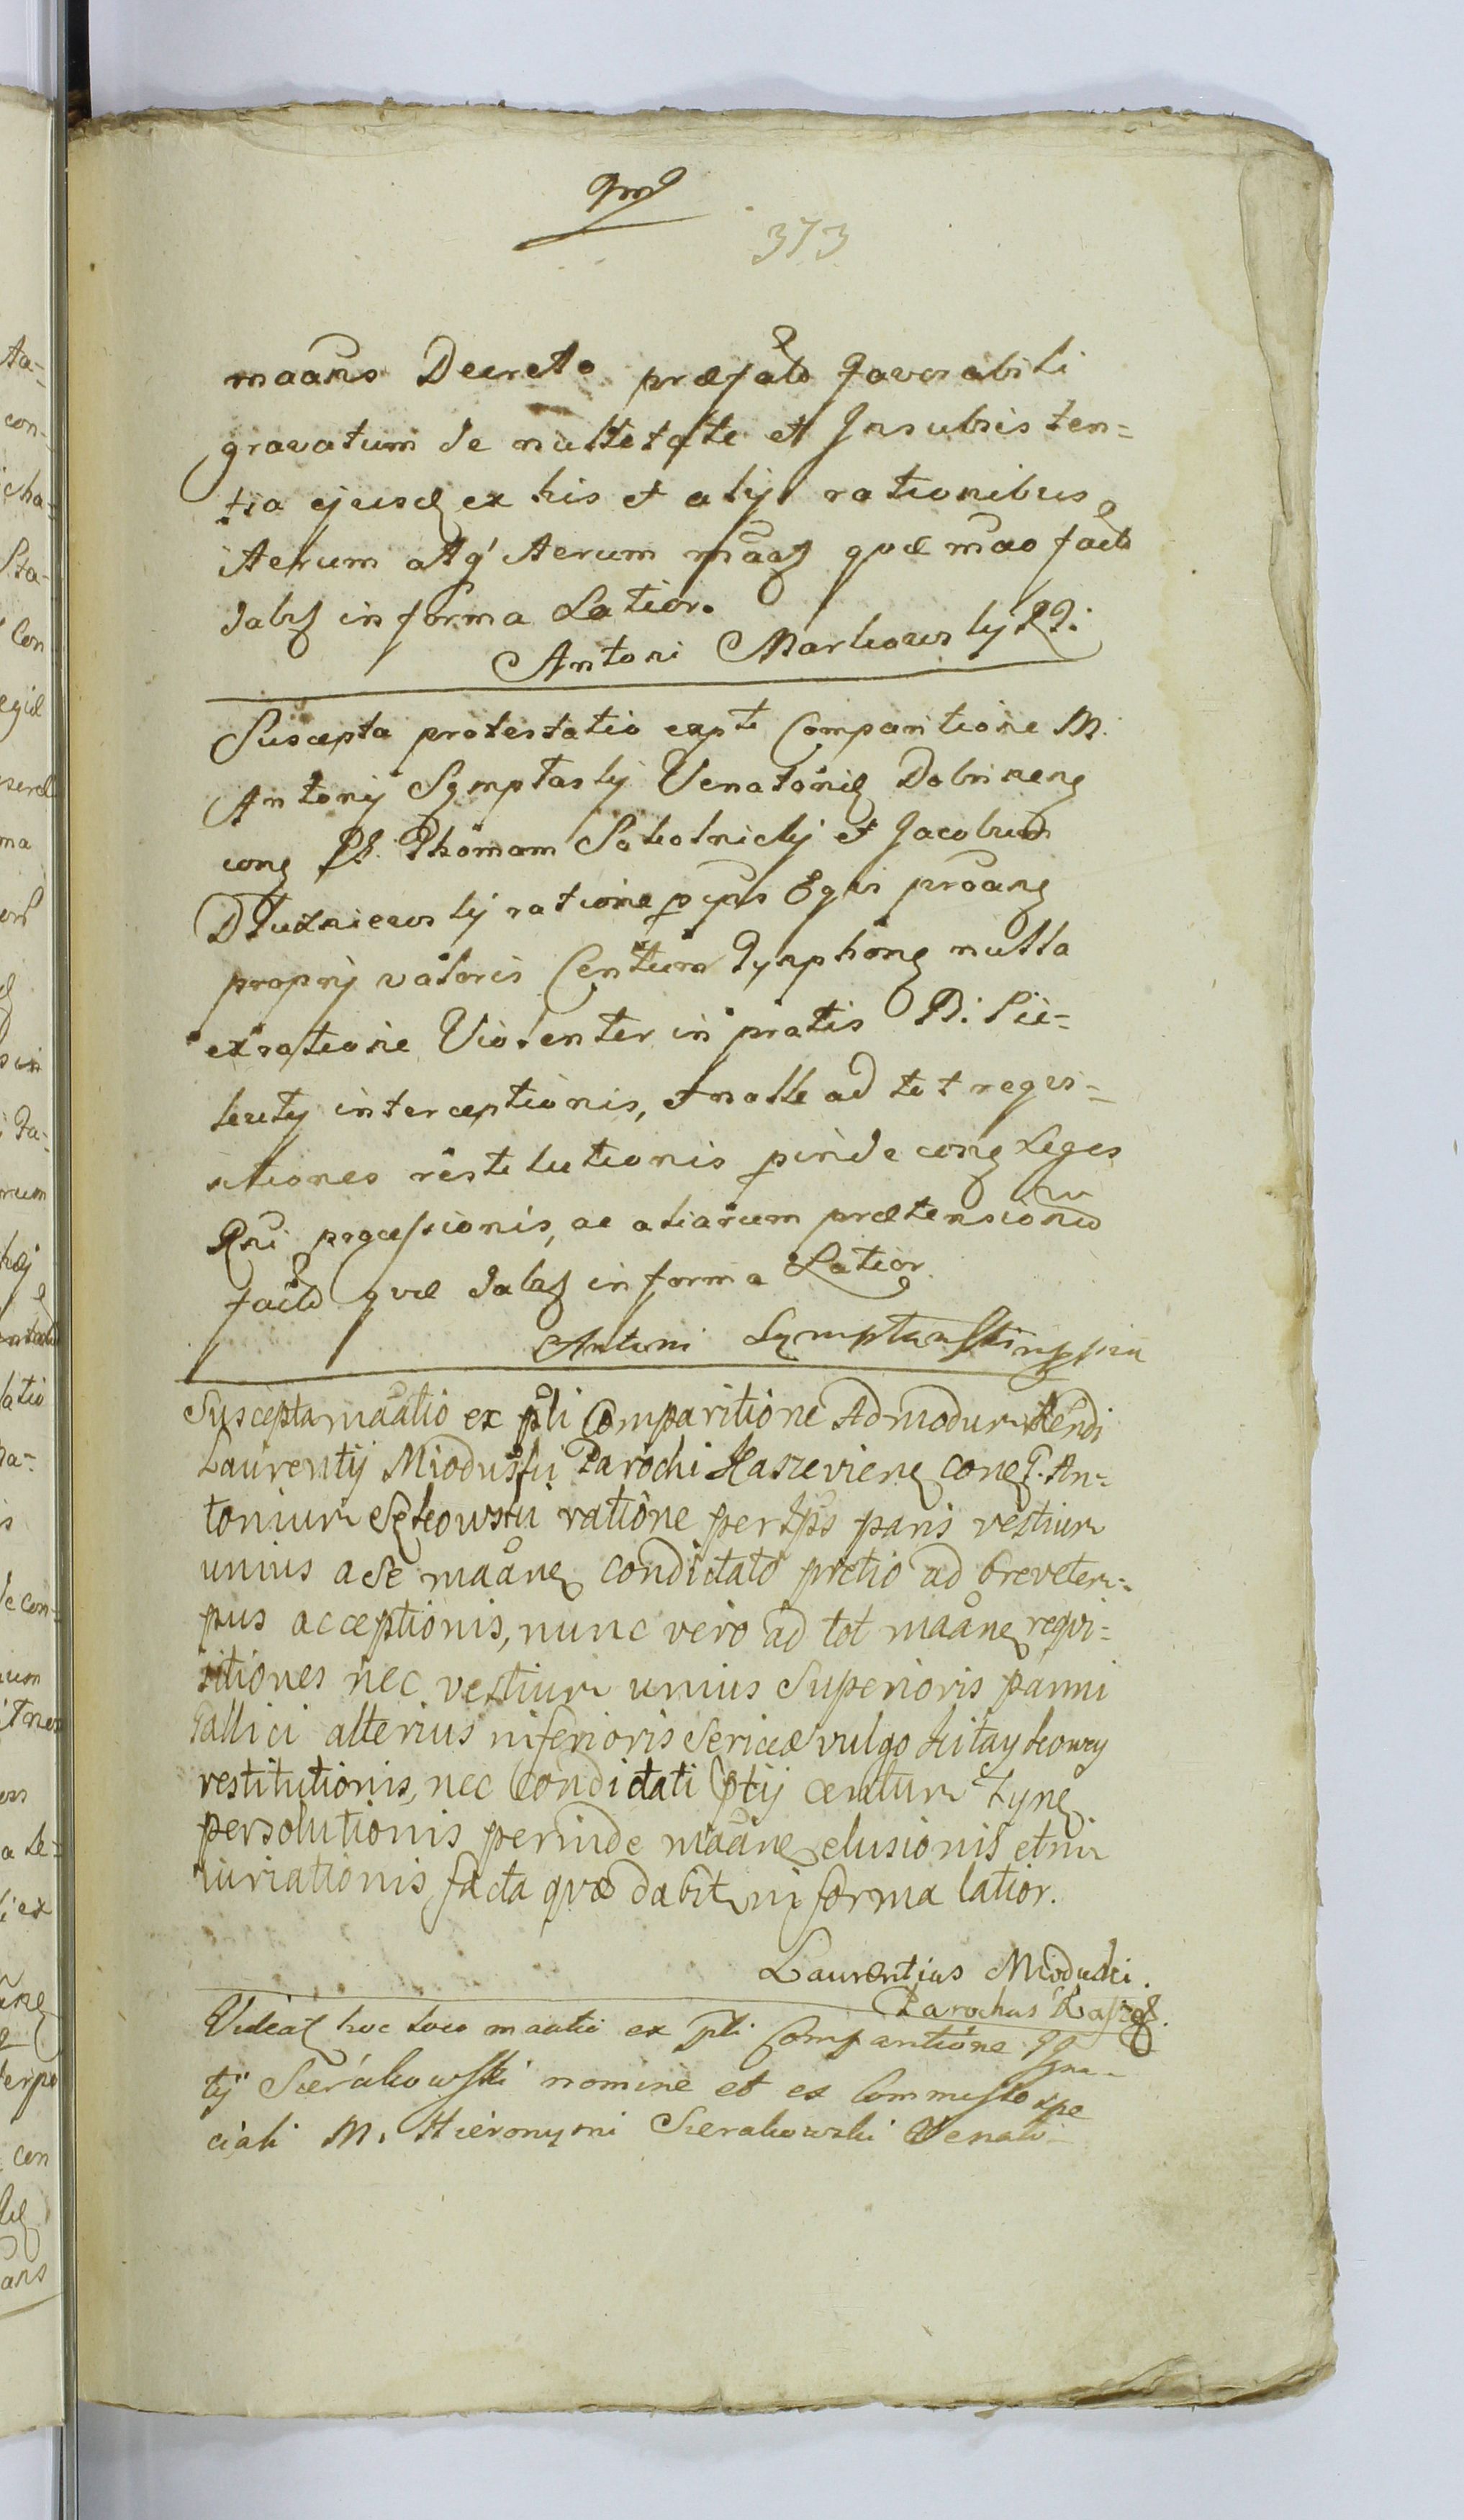 373
maans Decreto præfato favorabili
gravatum de nullitate et Insubsisten=
tia ejusd ex his et alijs rationibus
iterum atq iterum maaz quæ mao facto
dabz in forma Latiori
Antoni Markowskj
Suscepta protestatio expti Comparitione M.
Antonij Symptaskj Venatoris Dobrinens
cong Thomam Sokolnickj et Jacobum
Dłużniewskj ratione Equi proang
proprij valoris Centum Tynphong nulla
ex ratione Violenter in pratis
interceptionis, et nolle ad tot reqvi=
sitiones restitutionis perinde cong Leges
Rni processionis, ac aliarum prætensionu
facto quæ dabz in forma Latior
Antoni Symptawski mppria
Suscepta maatio ex pti Comparitione Admodum Rendi
Laurentij Mioduski Parochi cong G. An=
tonium ratione per ips paris vestium
unius a se maang condictato pretio ad breve tem=
pus acceptionis, nunc vero ad tot maang reqvi=
sitiones nec vestium unius Superioris panni
Gallici alterius inferioris Sericeæ vulgo kitaykowey
restitutionis, nec Condictati ptij centum Tyng
persolutionis perinde maang elusionis et in
iuriationis facta quæ dabit in forma latior.
Laurentius Mioduski.
Parochus
Videaz hoc loco maatio ex pti Comparitione Igna-
tij Sierakowski nomine et ex Commisso spe
ciali M. Hieronymi Sierakowski Venato-